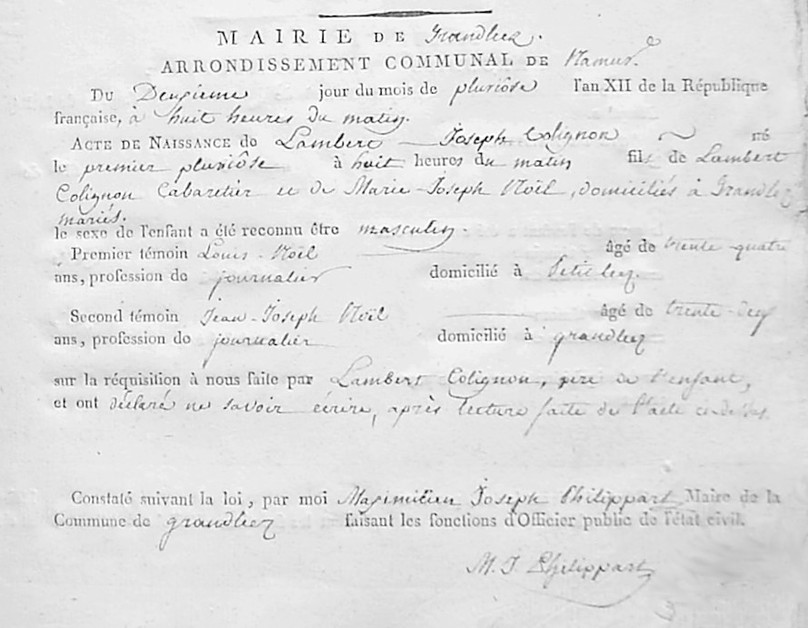 MAIRIE DE Grandleez.
ARRONDISSEMENT COMMUNAL DE Namur.
Du Deuxieme jour du mois de pluviôse l'an XII de la République
française, à huit heures du matin.
ACTE DE NAISSANCE de Lambert - Joseph Colignon né
le premier pluviôse à huit heures du matin fils de Lambert
Colignon Cabaretier et de Marie-Joseph Noël, domiciliés à Grandleez
mariés.
le sexe de l'enfant a été reconnu être masculin.
Premier témoin Louis Noël âgé de trente-quatre
ans, profession de journalier domicilié à Petit leez.
Second témoin Jean-Joseph Noël âgé de trente-deux
ans, profession de journalier domicilié à grandleez
sur la réquisition à nous faite par Lambert Colignon, père de l'enfant,
et ont déclaré ne savoir écrire, après lecture faite de l'acte ci-dessus.
Constaté suivant la loi, par moi Maximilien Joseph Philippart Maire de la
Commune de grandleez faisant les fonctions d'Officier public de l'état civil.
M. J. Philippart